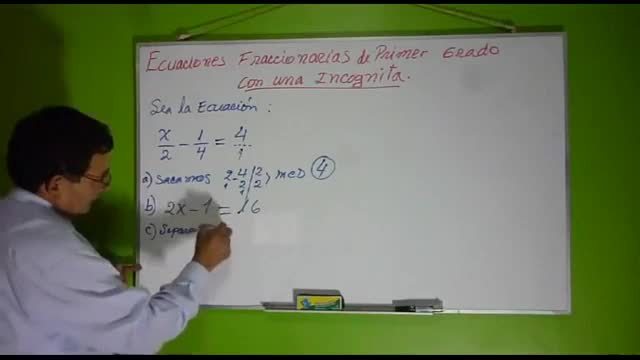 Ecuaciones Fraccionarias de Primer Grado
Con una Incognita.
Sea la Ecuación :
x/2 - 1/4 = 4/1
a) Sacamos 2-4 | 2 > mcD (4)
1 2 | 2
1
b) 2x - 1 = 16
c) Separa